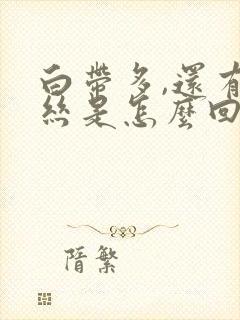 白帶多,還有
絲是怎麼回
隋繁